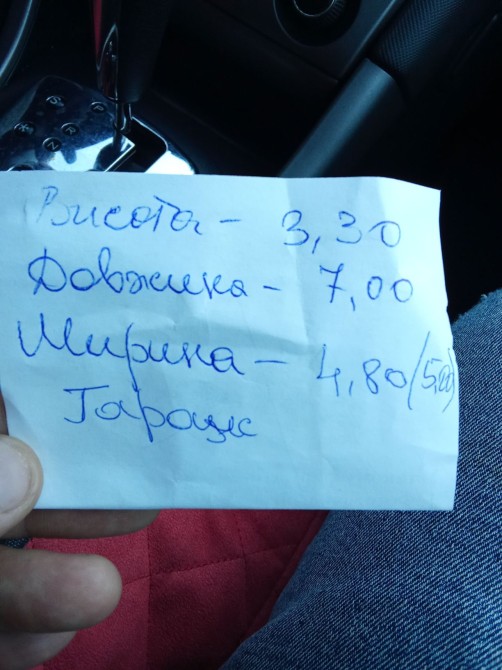 Висота - 3,30
Довжина - 7,00
Ширина - 4,80 (5,00)
Гараж